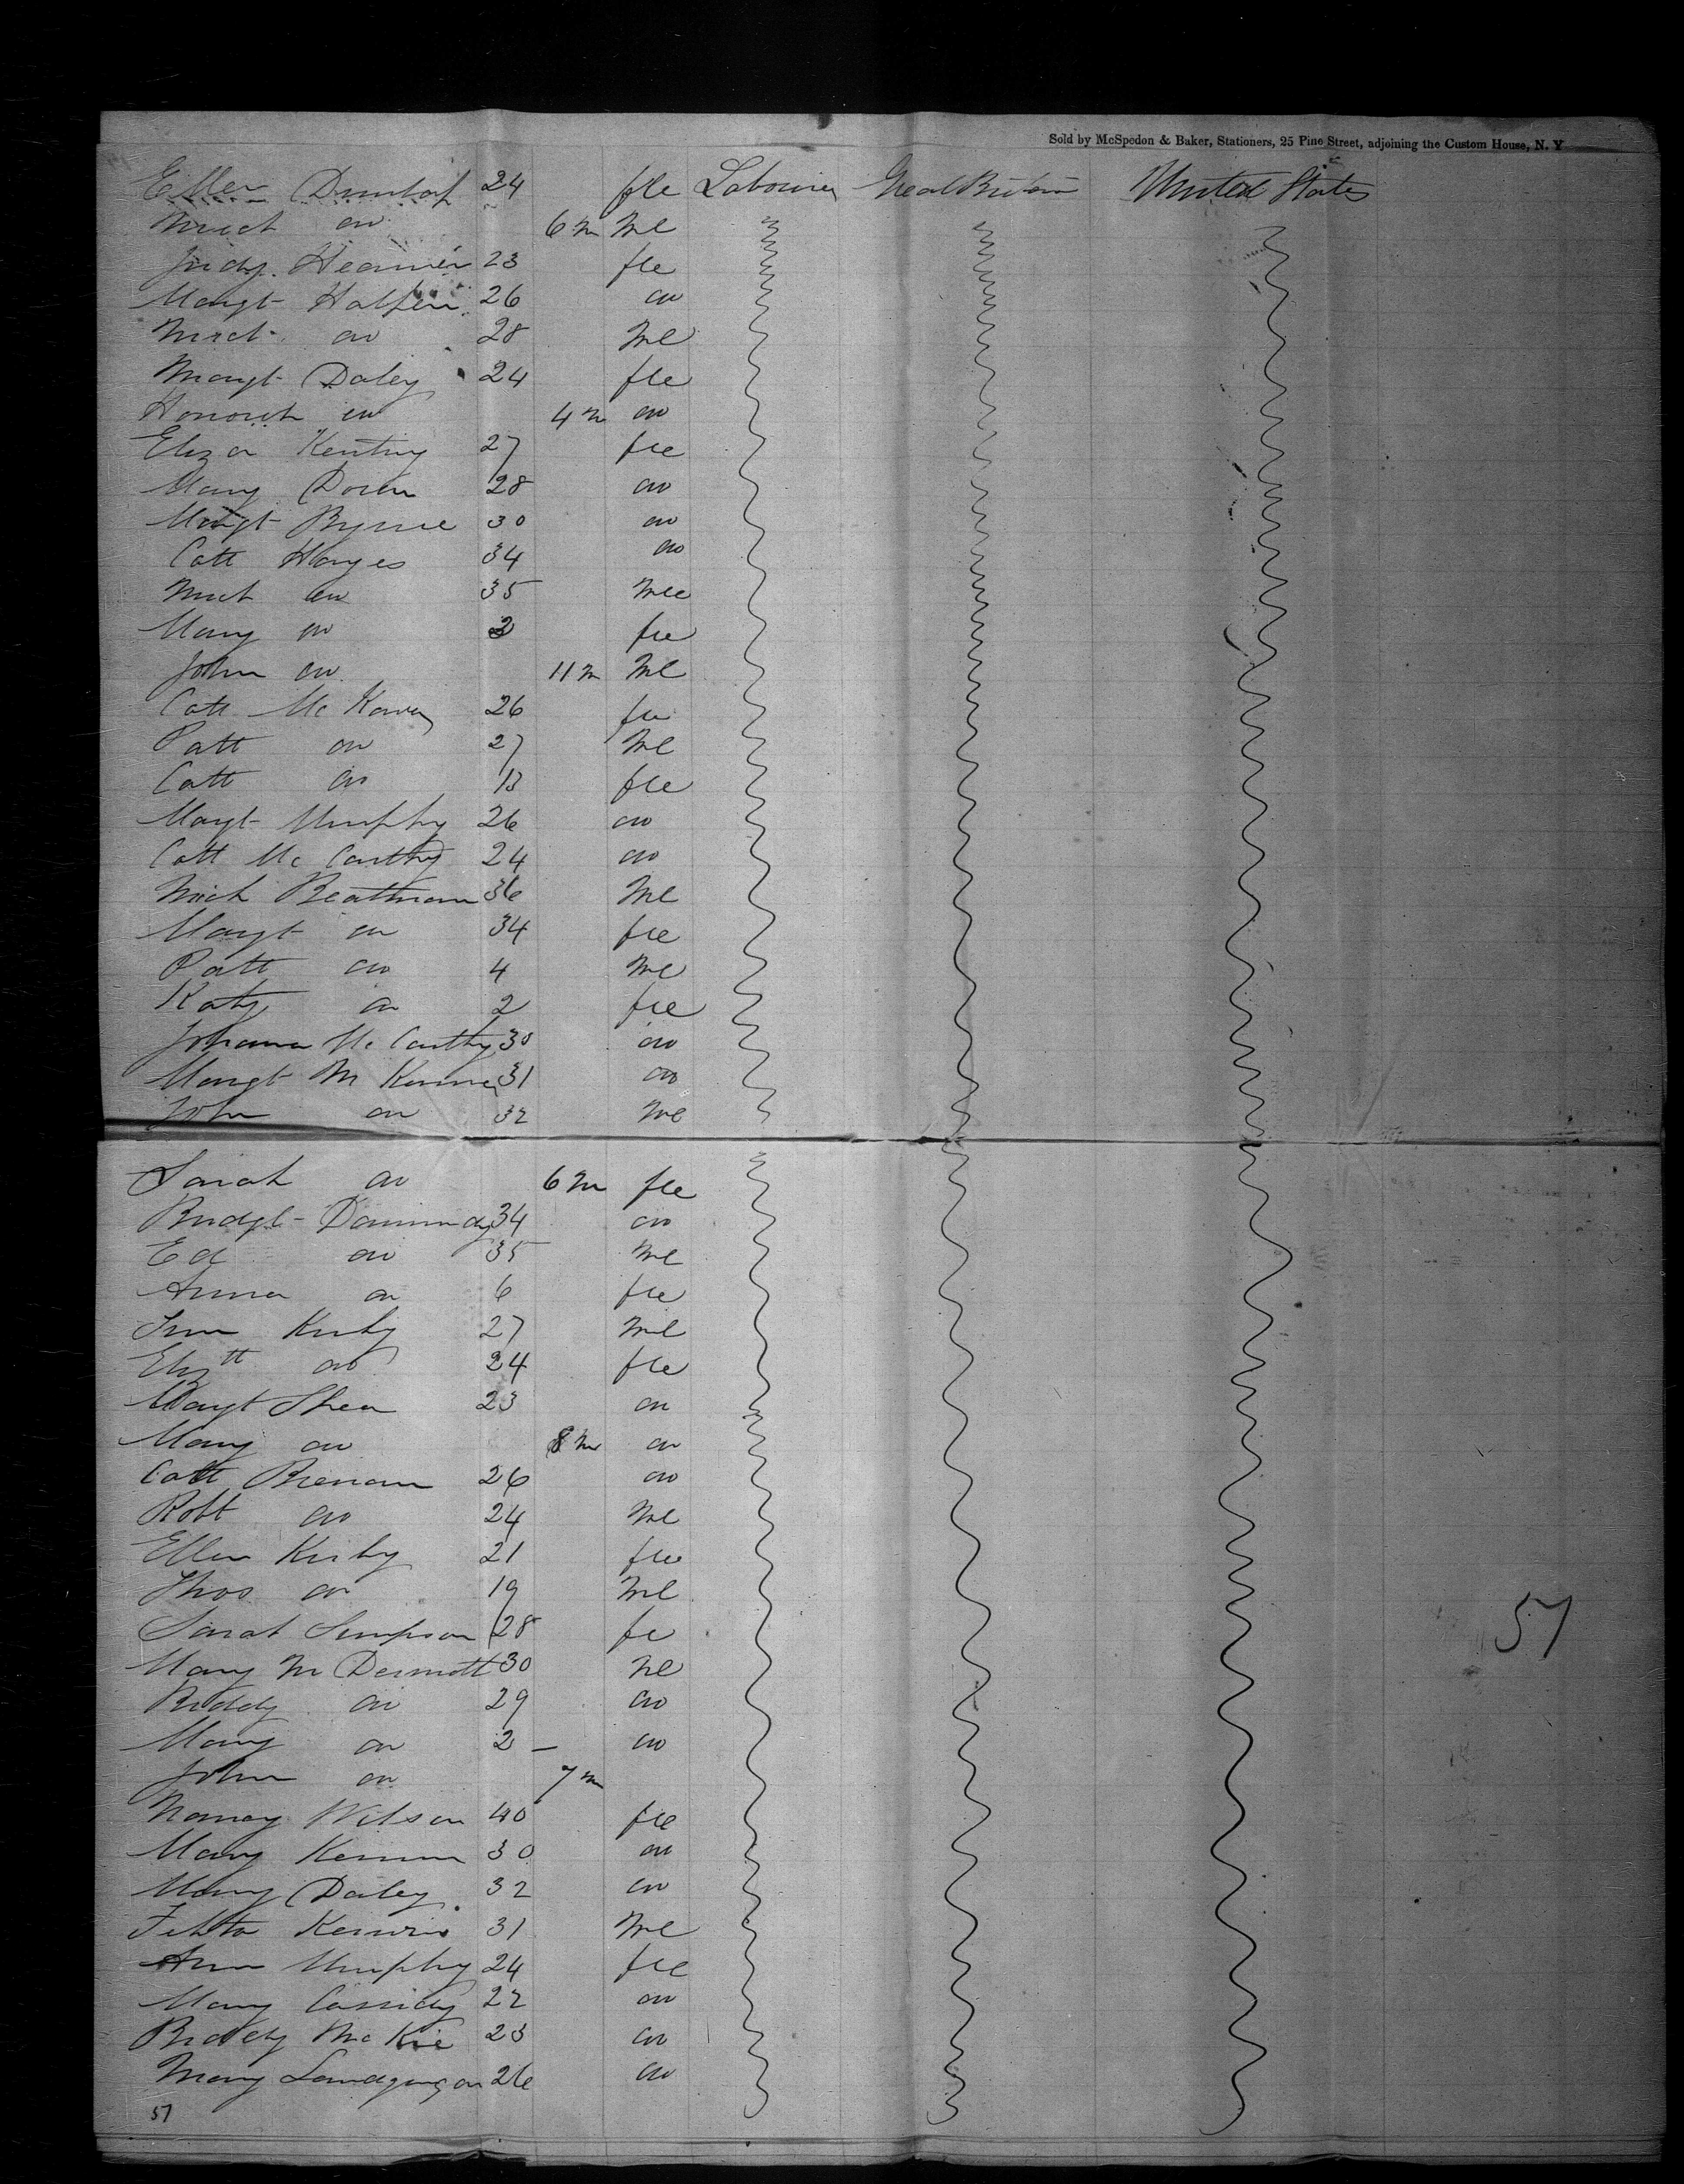 Sold by McSpedon & Baker, Stationers, 25 Pine Street, adjoining the Custom House, N. Y
Ellen Dunlap 24 fle Labourer Great Britain United States
Mich do 6 m Ml
Judy 23 fle
Margt Halfin 26 do
Mich do 28 Ml
Margt Daley 24 fle
Honorah do 4 m do
Eliza Keating 27 fle
Mary Doran 28 do
Margt Byrne 30 do
Cath Hayes 34 do
Mich do 35 Mle
Mary do 2 fle
John do 11 m Ml
Cath Mc 26 fle
Patt do 27 Ml
Cath do 13 fle
Margt Murphy 26 do
Cath Mc Carthy 24 do
Mich 36 Ml
Margt do 34 fle
Patt do 4 Ml
Katy do 2 fle
Johanna Mc Carthy 30 do
Margt M Kenna 31 do
John do 32 Ml
Sarah do 6 m fle
Bridgt 34 do
Ed do 35 Ml
Anna do 6 fle
Kirby 27 Ml
Elizth do 24 fle
Margt Shea 23 do
Mary do 8 m do
Cath Brenan 26 do
Robt do 24 Ml
Ellen Kirby 21 fle
Thos do 19 Ml
Sarah Simpson 28 fe
Mary M Dermott 30 Ml
Biddy do 29 do
Mary do 2 – do
John do 7 m
Nancy Wilson 40 fle
Mary 30 do
Mary Daley 32 do
31 Ml
Ann Murphy 24 fle
Mary Cassidy 22 do
Biddy Mc Kie 23 do
Mary 26 do
57
57